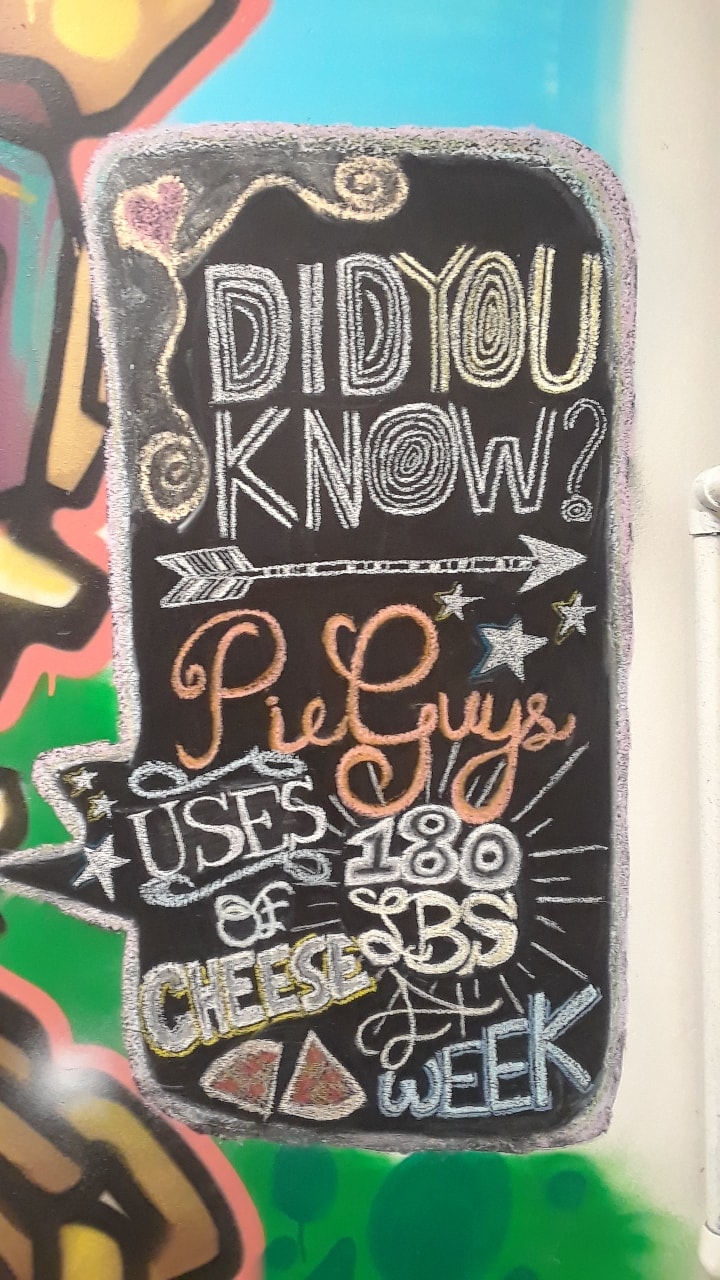 DID YOU
KNOW?
Pie Guys
USES 180
OF LBS
CHEESE A
WEEK